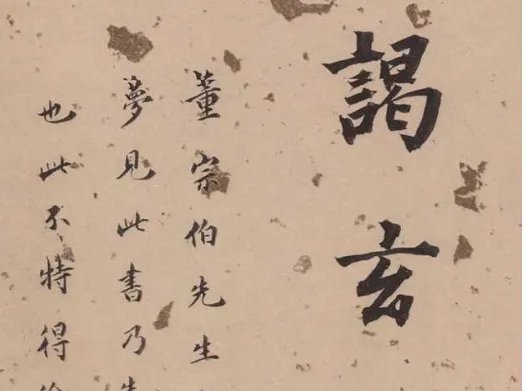 謁玄
董宗伯先生
夢見此書乃
也此不特得